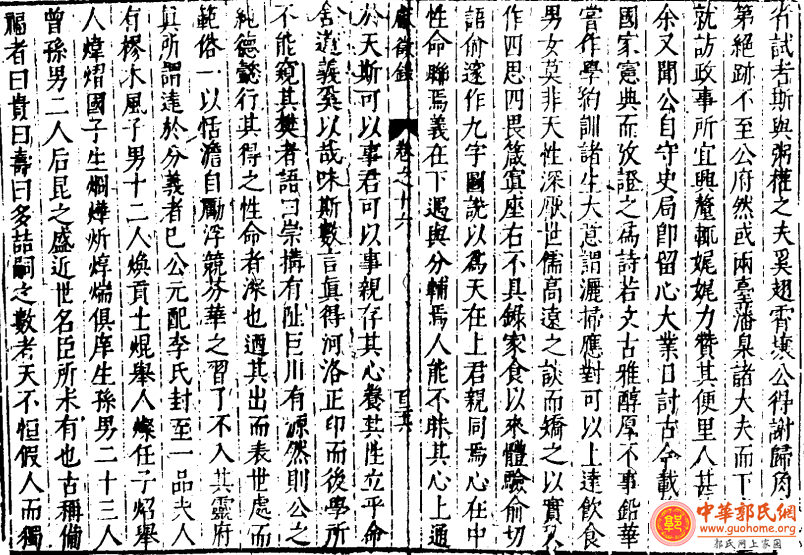 省試者斯與粥權之夫奚翅霄壤公得謝歸角
第絕跡不至公府然或兩臺藩臬諸大夫而下
就訪政事所宜興釐輒娓娓力贊其便里人甚
余又聞公自守史局卽留心大業日討古今載
國家憲典而攷證之爲詩若文古雅醇厚不事鉛華
嘗作學約訓諸生大意謂灑掃應對可以上達飲食
男女莫非天性深厭世儒高遠之談而矯之以實又
作四思四畏箴寘座右不具錄家食以來體驗俞切
語俞邃作九字圖說以爲天在上君親同焉心在中
性命聯焉義在下遇與分輔焉人能不昧其心上通
獻徵錄 卷之十六
於天斯可以事君可以事親存其心養其性立乎命
舍道義奚以哉味斯數言眞得河洛正印而後學所
不能窺其樊者語曰崇搆有阯巨川有源然則公之
純德懿行其得之性命者深也廼其出而表世處而
範俗一以恬澹自勵浮競芬華之習了不入其靈府
眞所謂達於分義者已公元配李氏封至一品夫人
有樛木風子男十二人煥貢士焜舉人燦任子炤舉
人煒熠國子生爓燁炘焞煓俱庠生孫男二十三人
曾孫男二人后昆之盛近世名臣所未有也古稱備
福者曰貴曰壽曰多喆嗣之數者天不恒假人而獨
中華郭氏網
www.guohome.org
郭氏网上家園